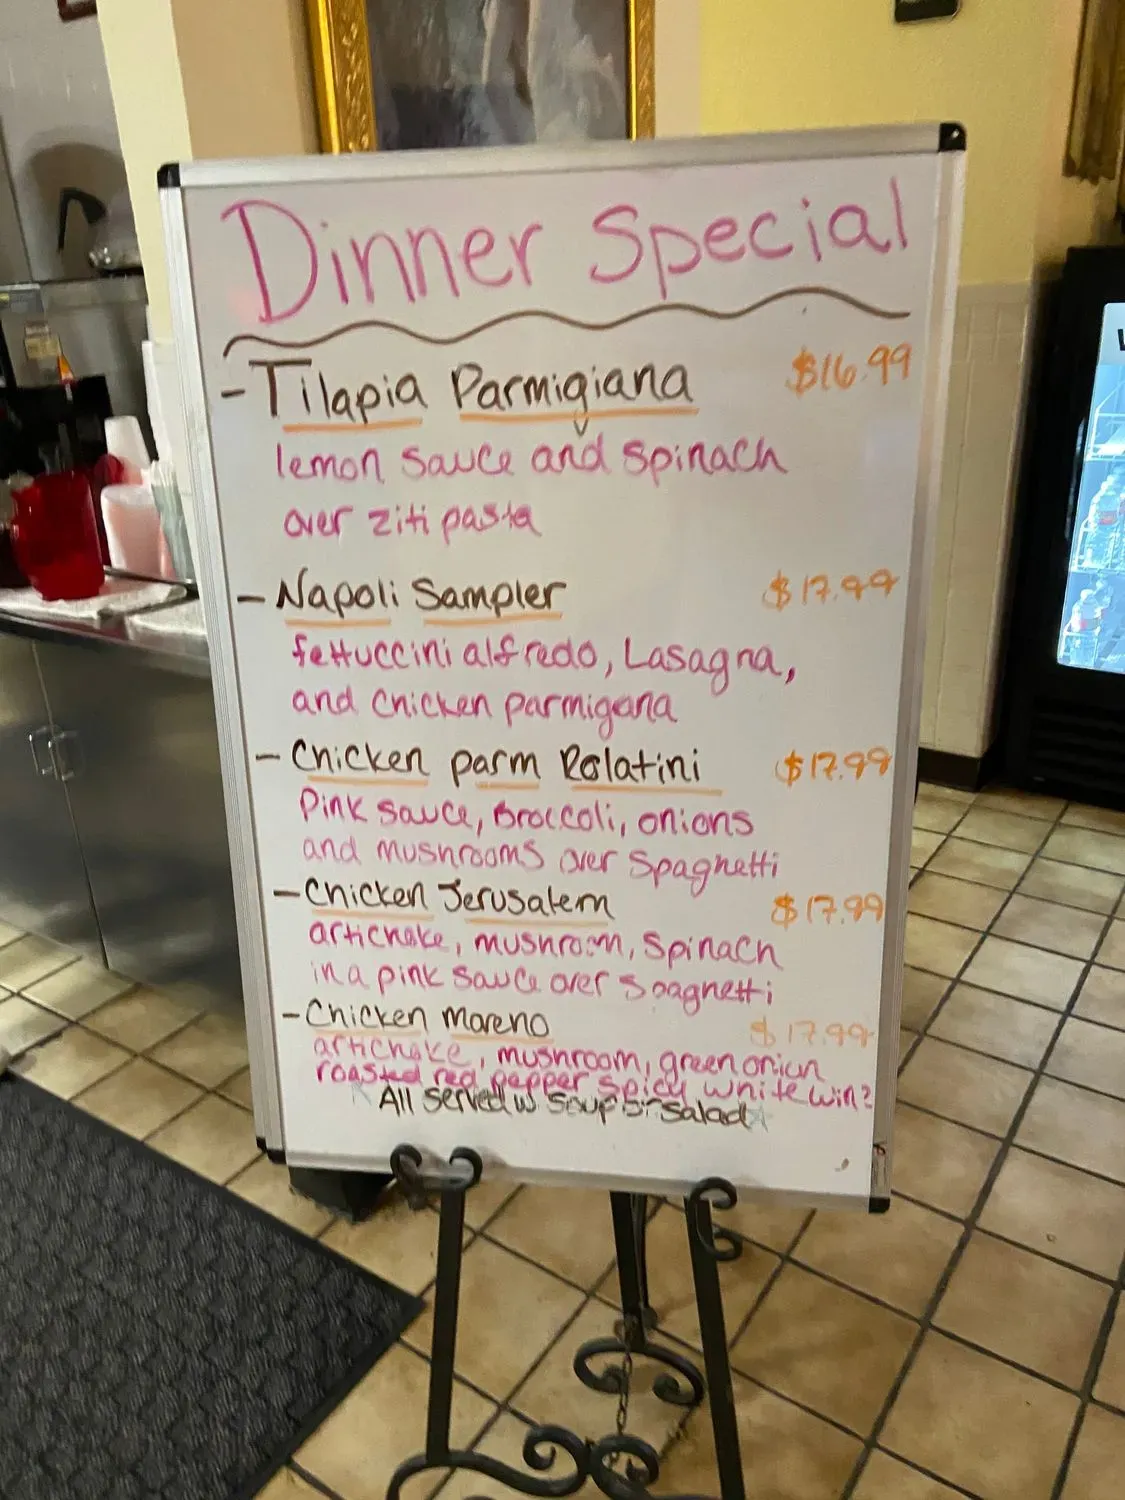 Dinner Special
- Tilapia Parmigiana $16.99
lemon sauce and spinach
over ziti pasta
- Napoli Sampler $17.99
fettuccini alfredo, Lasagna,
and chicken parmigana
- Chicken parm Rolatini $17.99
Pink sauce, Broccoli, onions
and mushrooms over spaghetti
- Chicken Jerusalem $17.99
artichoke, mushroom, spinach
in a pink sauce over spaghetti
- Chicken Moreno $17.99
artichoke, mushroom, green onion
roasted red pepper spicy white wine
All served w soup or salad